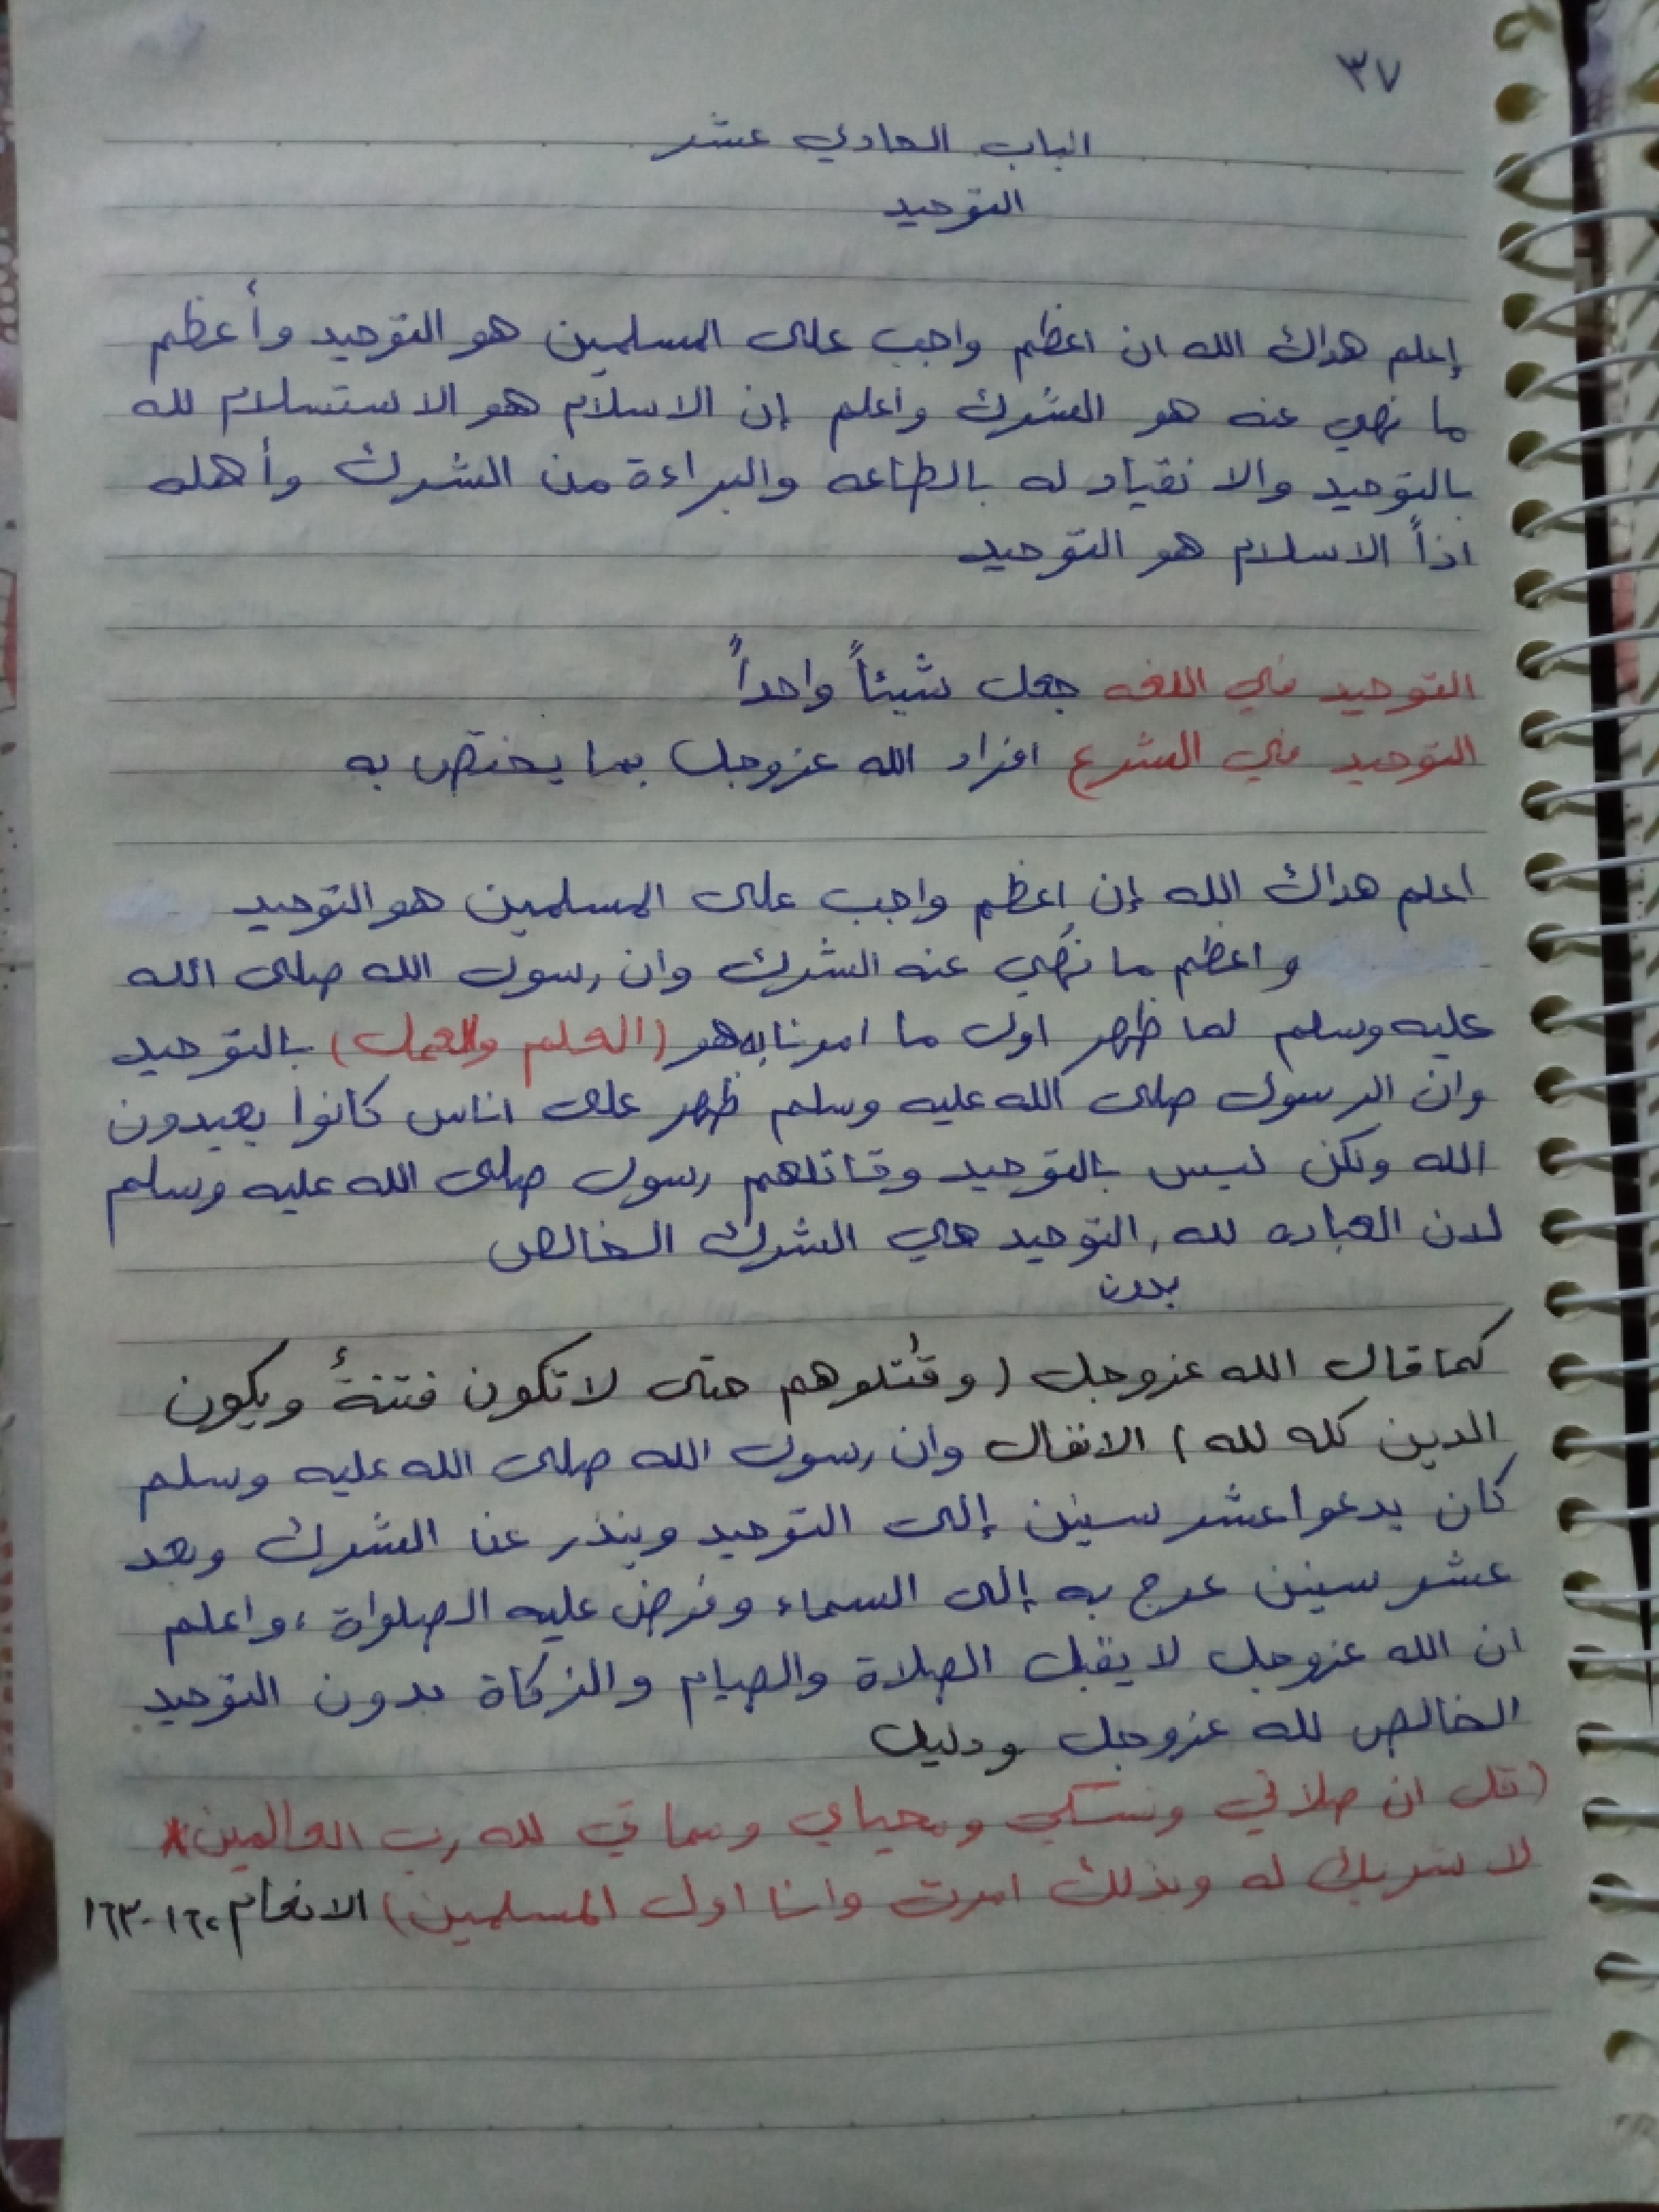 ٣٧
الباب الحادي عشر
التوحيد
إعلم هداك الله ان اعظم واجب على المسلمين هو التوحيد وأعظم
ما نهي عنه هو الشرك واعلم إن الاسلام هو الاستسلام لله
بالتوحيد والانقياد له بالطاعه والبراءة من الشرك وأهله
اذاً الاسلام هو التوحيد
التوحيد في اللغه جعل شيئاً واحداً
التوحيد في الشرع افراد الله عزوجل بما يختص به
اعلم هداك الله إن اعظم واجب على المسلمين هو التوحيد
واعظم ما نهي عنه الشرك وان رسول الله صلى الله
عليه وسلم لما ظهر اول ما امرنا به هو (العلم والعمل) بالتوحيد
وان الرسول صلى الله عليه وسلم ظهر على اناس كانوا يعبدون
الله ولكن ليس بالتوحيد وقاتلهم رسول صلى الله عليه وسلم
لان العباده لله , التوحيد هي الشرك الخالص
بدون
كما قال الله عزوجل (وقٰتلوهم حتى لا تكون فتنةٌ ويكون
الدين كله لله) الانفال وان رسول الله صلى الله عليه وسلم
كان يدعوا عشر سنين إلى التوحيد وينذر عن الشرك وبعد
عشر سنين عرج به إلى السماء وفرض عليه الصلواة ، واعلم
ان الله عزوجل لا يقبل الصلاة والصيام والزكاة بدون التوحيد
الخالص لله عزوجل ودليل
(قل ان صلاتي ونسكي ومحياي ومماتي لله رب العالمين*
لا شريك له وبذلك امرت وانا اول المسلمين) الانعام ١٦٢-١٦٣